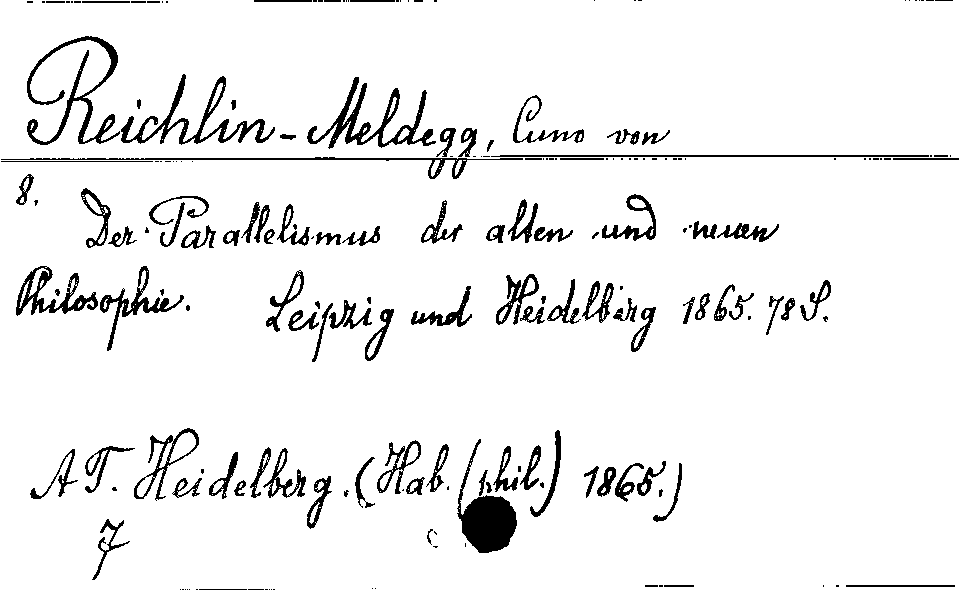 Reichlin-Meldegg, Cuno von
8.
Der Parallelismus der alten und neuen
Philosophie. Leipzig und Heidelberg 1865. 78 S.
AT. Heidelberg. (Hab. (phil.) 1865.)
7